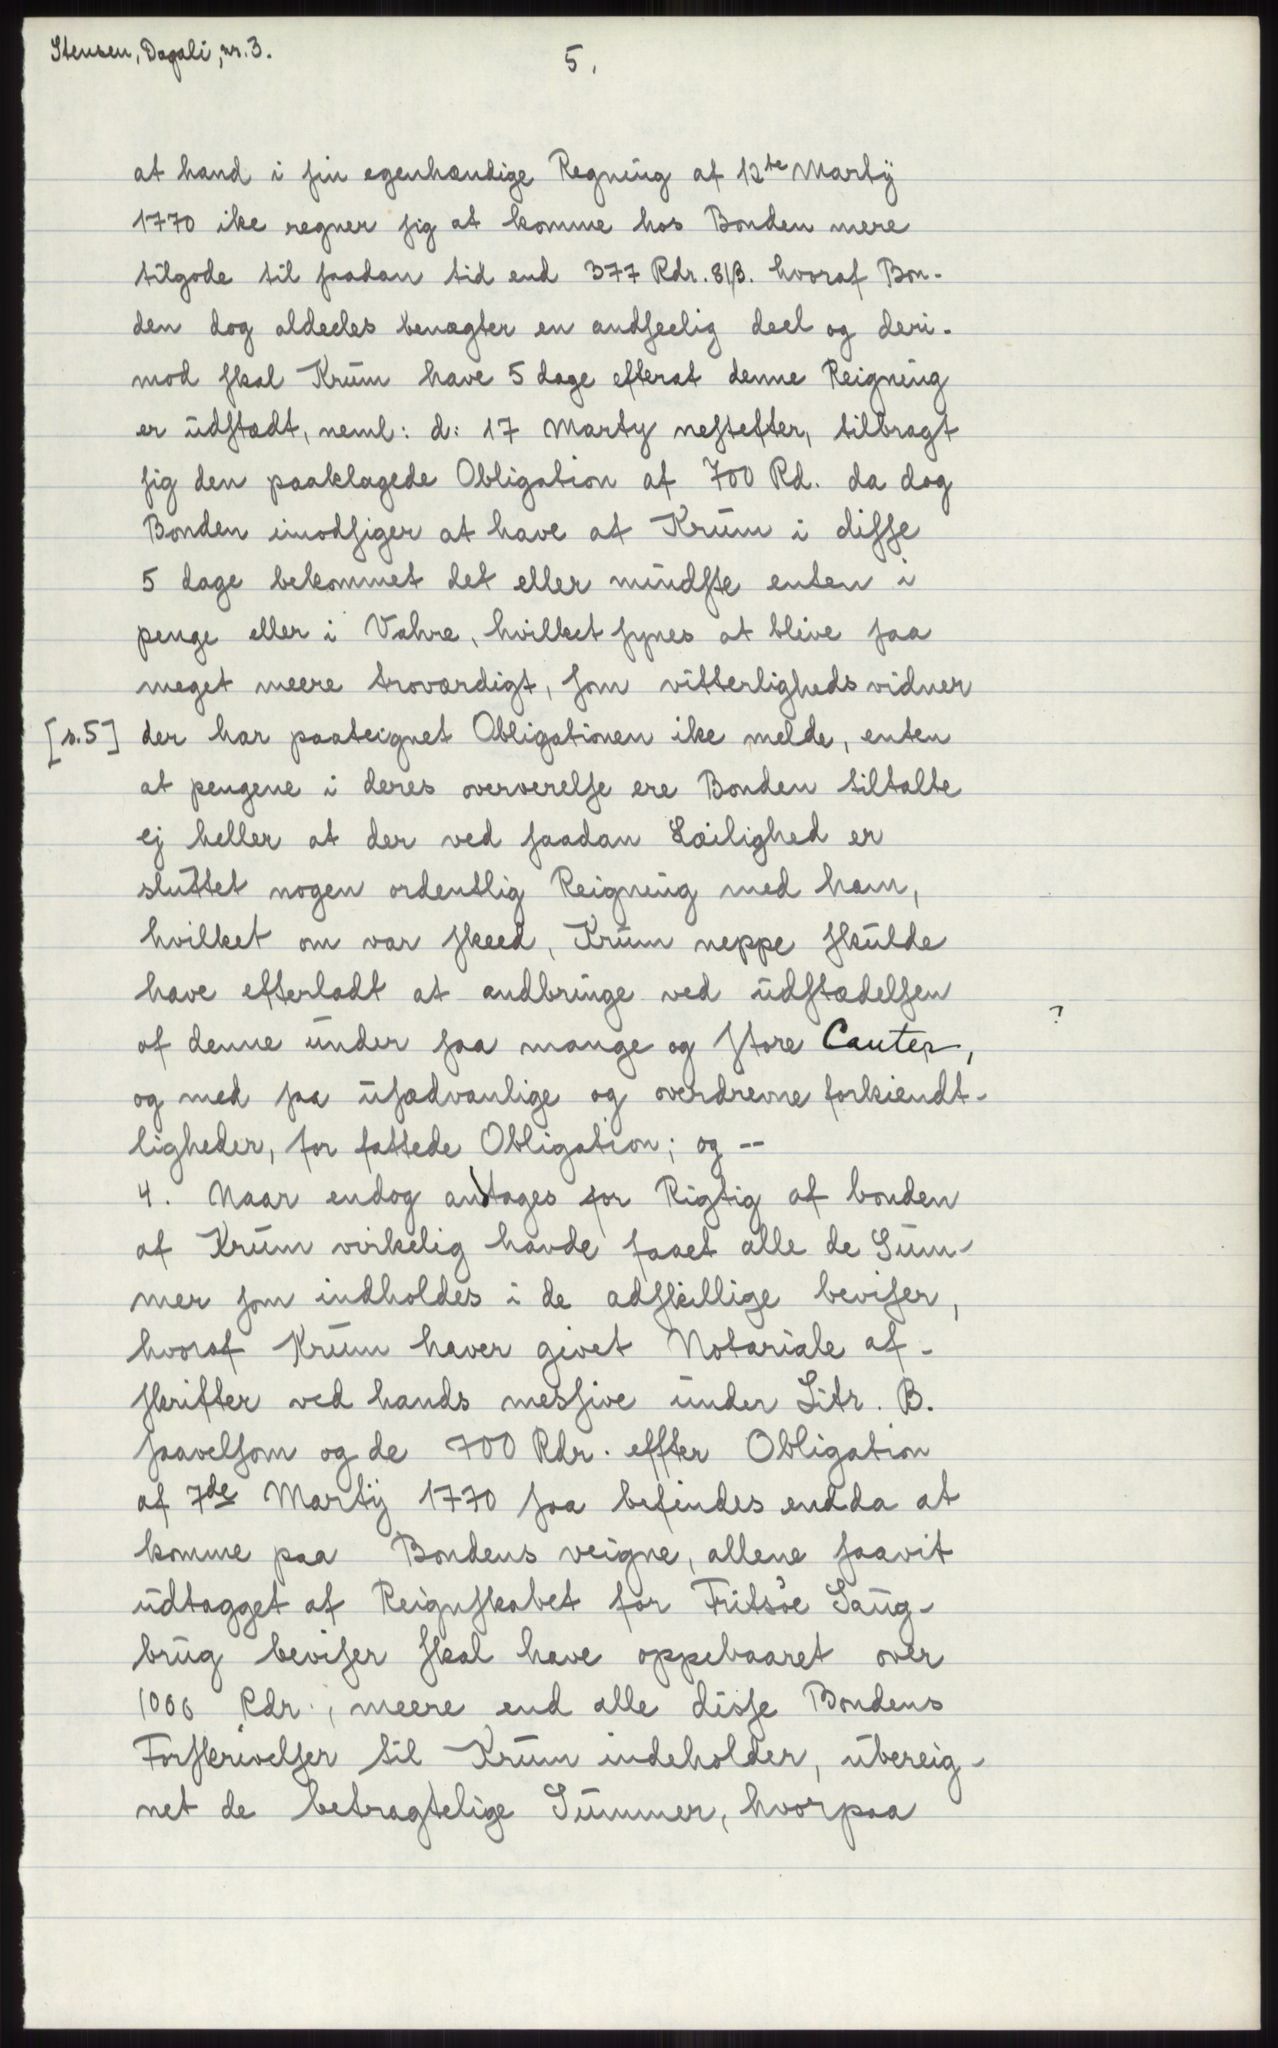 Stensen, Dagali, nr. 3.
5.
at hand i sin egenhændige Regning af 12te Martÿ
1770 ike regner sig at komme hos Bonden mere
tilgode til saadan tid end 377 Rdr. 81β. hvoraf Bon-
den dog aldeeles benægter en andseelig deel og deri-
mod skal Krum have 5 dage efterat denne Reigning
er udstædt, neml: d: 17 Marty nestefter, tilbragt
sig den paaklagede Obligation af 700 Rd. da dog
Bonden imodsiger at have af Krum i disse
5 dage bekommet det eller mindste enten i
penge eller i Vahre, hvilket synes at blive saa
meget meere troværdigt, som vitterligheds vidner
[s.5] der har paateignet Obligationen ike melde, enten
at pengene i deres oververelse ere Bonden tiltalte
ej heller at der ved saadan Læilighed er
sluttet nogen ordentlig Reigning med ham,
hvilket om var skeed, Krum neppe skulde
have efterladt at andbringe ved udstædelsen
af denne under saa mange og store Cauter, ?
og med saa usædvanlige og overdrevne forkiendt-
ligheder, for fattede Obligation; og --
4. Naar endog antages for Rigtig af bonden
af Krum virkelig havde faaet alle de Sum-
mer som indholdes i de adskillige beviser,
hvoraf Krum haver givet Notariale af-
skrifter ved hands messive under Litr. B.
saavelsom og de 700 Rdr. effter Obligation
af 7de Martÿ 1770 saa befindes endda at
komme paa Bondens veigne, allene saavit
udtagget af Reignskabet for Fritsöe Saug-
brug beviser skal have oppebaaret over
1000 Rdr., meere end alle disse Bondens
Forskrivelser til Krum indeholder, ubereig-
net de betragtelige Summer, hvorpaa